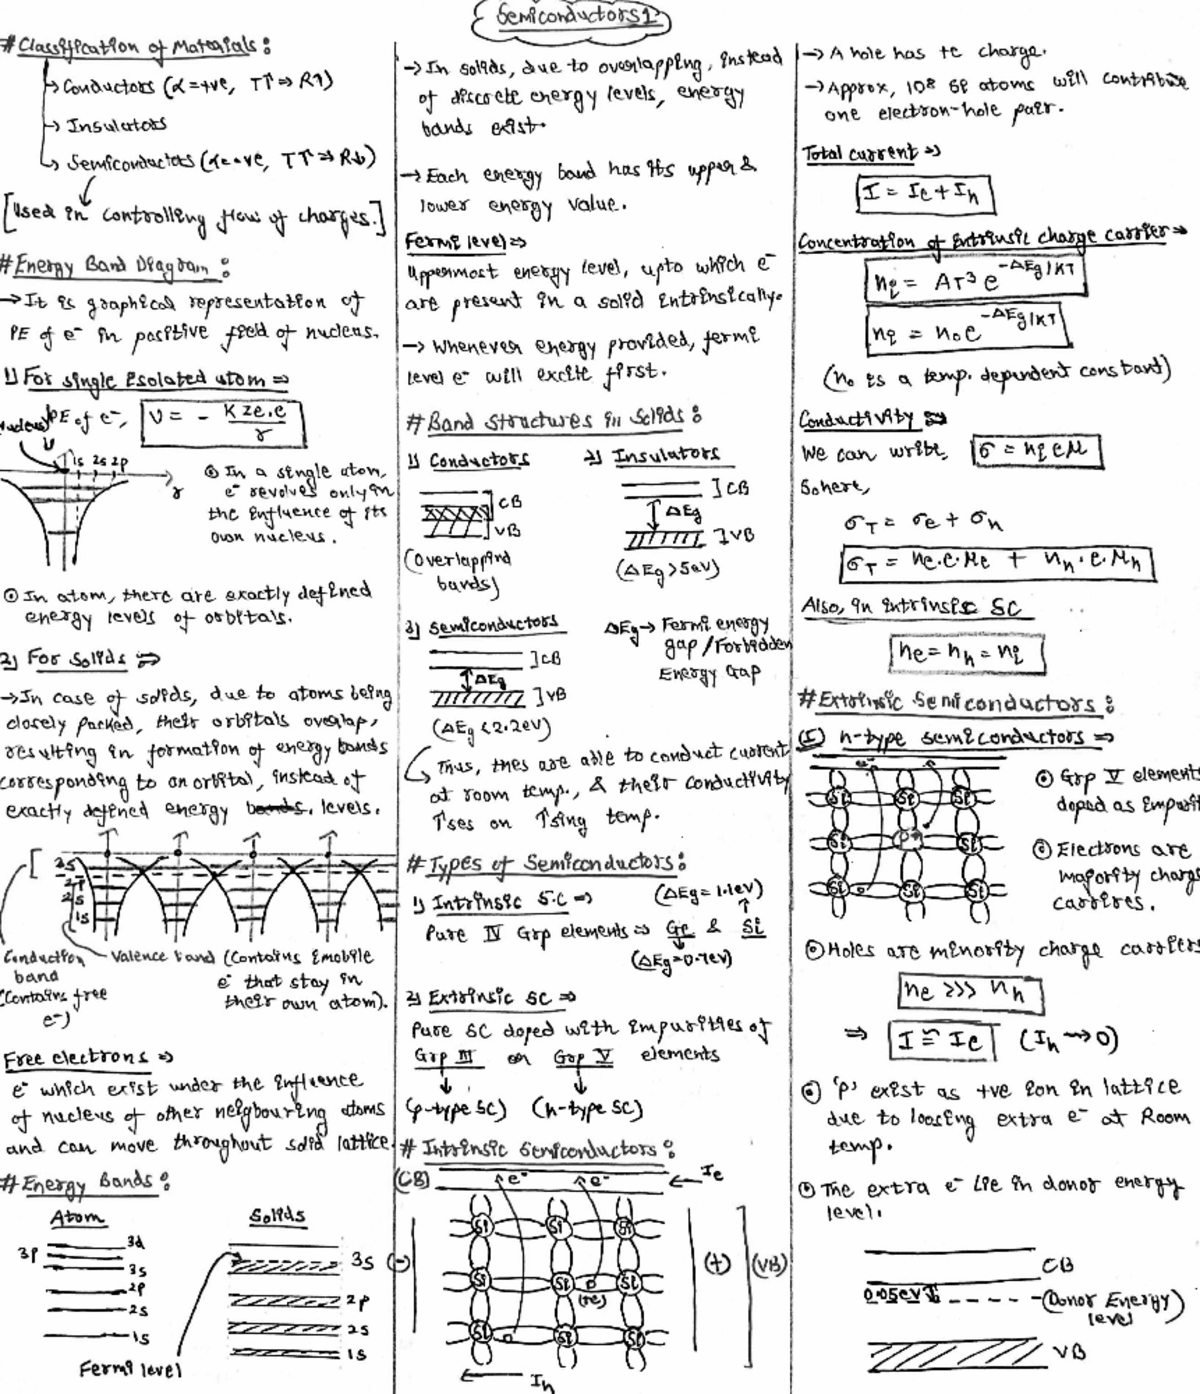 Semiconductors 1
# Classification of Materials :
→ Conductors (α=+ve, T↑ ⇒ R↑)
→ Insulators
→ Semiconductors (α=-ve, T↑ ⇒ R↓)
[Used in controlling flow of charges.]
# Energy Band Diagram :
→ It is graphical representation of
PE of e⁻ in positive field of nucleus.
1) For single Isolated atom ⇒
Nucleus
PE of e⁻, V = - Kze.e/r
1s 2s 2p
r
⊙ In a single atom,
e⁻ revolves only in
the influence of its
own nucleus.
⊙ In atom, there are exactly defined
energy levels of orbitals.
2) For Solids ⇒
→ In case of solids, due to atoms being
closely packed, their orbitals overlap,
resulting in formation of energy bands
corresponding to an orbital, instead of
exactly defined energy bands. levels.
2s
2p
2s
1s
Conduction
band
(Contains free
e⁻)
Valence band (Contains immobile
e⁻ that stay in
their own atom).
Free electrons ⇒
e⁻ which exist under the influence
of nucleus of other neighbouring atoms
and can move throughout solid lattice.
# Energy Bands :
Atom
3p
3d
3s
2p
2s
1s
Solids
3s
2p
2s
1s
Fermi level
→ In solids, due to overlapping, instead
of discrete energy levels, energy
bands exist.
→ Each energy band has its upper &
lower energy value.
Fermi level ⇒
Uppermost energy level, upto which e⁻
are present in a solid intrinsically.
→ Whenever energy provided, fermi
level e⁻ will excite first.
# Band Structures in Solids :
1) Conductors
CB
VB
(Overlapping
bands)
2) Insulators
]CB
ΔEg
]VB
(ΔEg>5eV)
3) Semiconductors
]CB
ΔEg
]VB
(ΔEg<2.2eV)
ΔEg → Fermi energy
gap/Forbidden
Energy Gap
Thus, thes are able to conduct current
at room temp., & their conductivity
↑ses on ↑sing temp.
# Types of Semiconductors :
1) Intrinsic S.C ⇒ (ΔEg=1.1eV)
Pure IV Grp elements ⇒ Ge & Si
(ΔEg=0.7eV)
2) Extrinsic SC ⇒
Pure SC doped with impurities of
Grp III or Grp V elements
(p-type SC) (n-type SC)
# Intrinsic Semiconductors :
(CB) e⁻ e⁻ ← Ie
Si Si Si
(-) Si Si Si (+) (VB)
Si Si Si
← Ih
→ A hole has +e charge.
→ Approx, 10⁸ Si atoms will contribute
one electron-hole pair.
Total current ⇒
I = Ie + Ih
Concentration of Intrinsic charge carrier ⇒
ni = AT³ e^-ΔEg/KT
ni = n₀e^-ΔEg/KT
(n₀ is a temp. dependent constant)
Conductivity ⇒
We can write, σ = ni eμ
So here,
σT = σe + σh
σT = ne.e.μe + nh.e.μh
Also, in intrinsic SC
ne = nh = ni
# Extrinsic Semiconductors :
(I) n-type semiconductors ⇒
e⁻
Si Si Si
Si P+ Si
Si Si Si
⊙ Grp V elements
doped as impurit
⊙ Electrons are
majority charge
carrires.
⊙ Holes are minority charge carriers
ne >>> nh
⇒ I ≅ Ie (Ih → 0)
⊙ 'P' exist as +ve ion in lattice
due to loosing extra e⁻ at Room
temp.
⊙ The extra e⁻ lie in donor energy
level.
CB
0.05eV
(Donor Energy)
level
VB